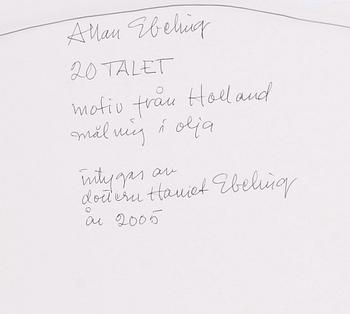 Allan Ebeling
20 TALET
motiv från Holland
målning i olja
intygas av
dottern Harriet Ebeling
år 2005